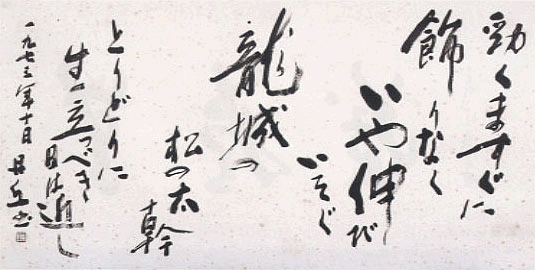 勁くますぐに
飾りなく
いや伸び
いそぐ
龍城の
松の太幹
とりどりに
生ひ立つべき
日は近し
一九七三年十日
書